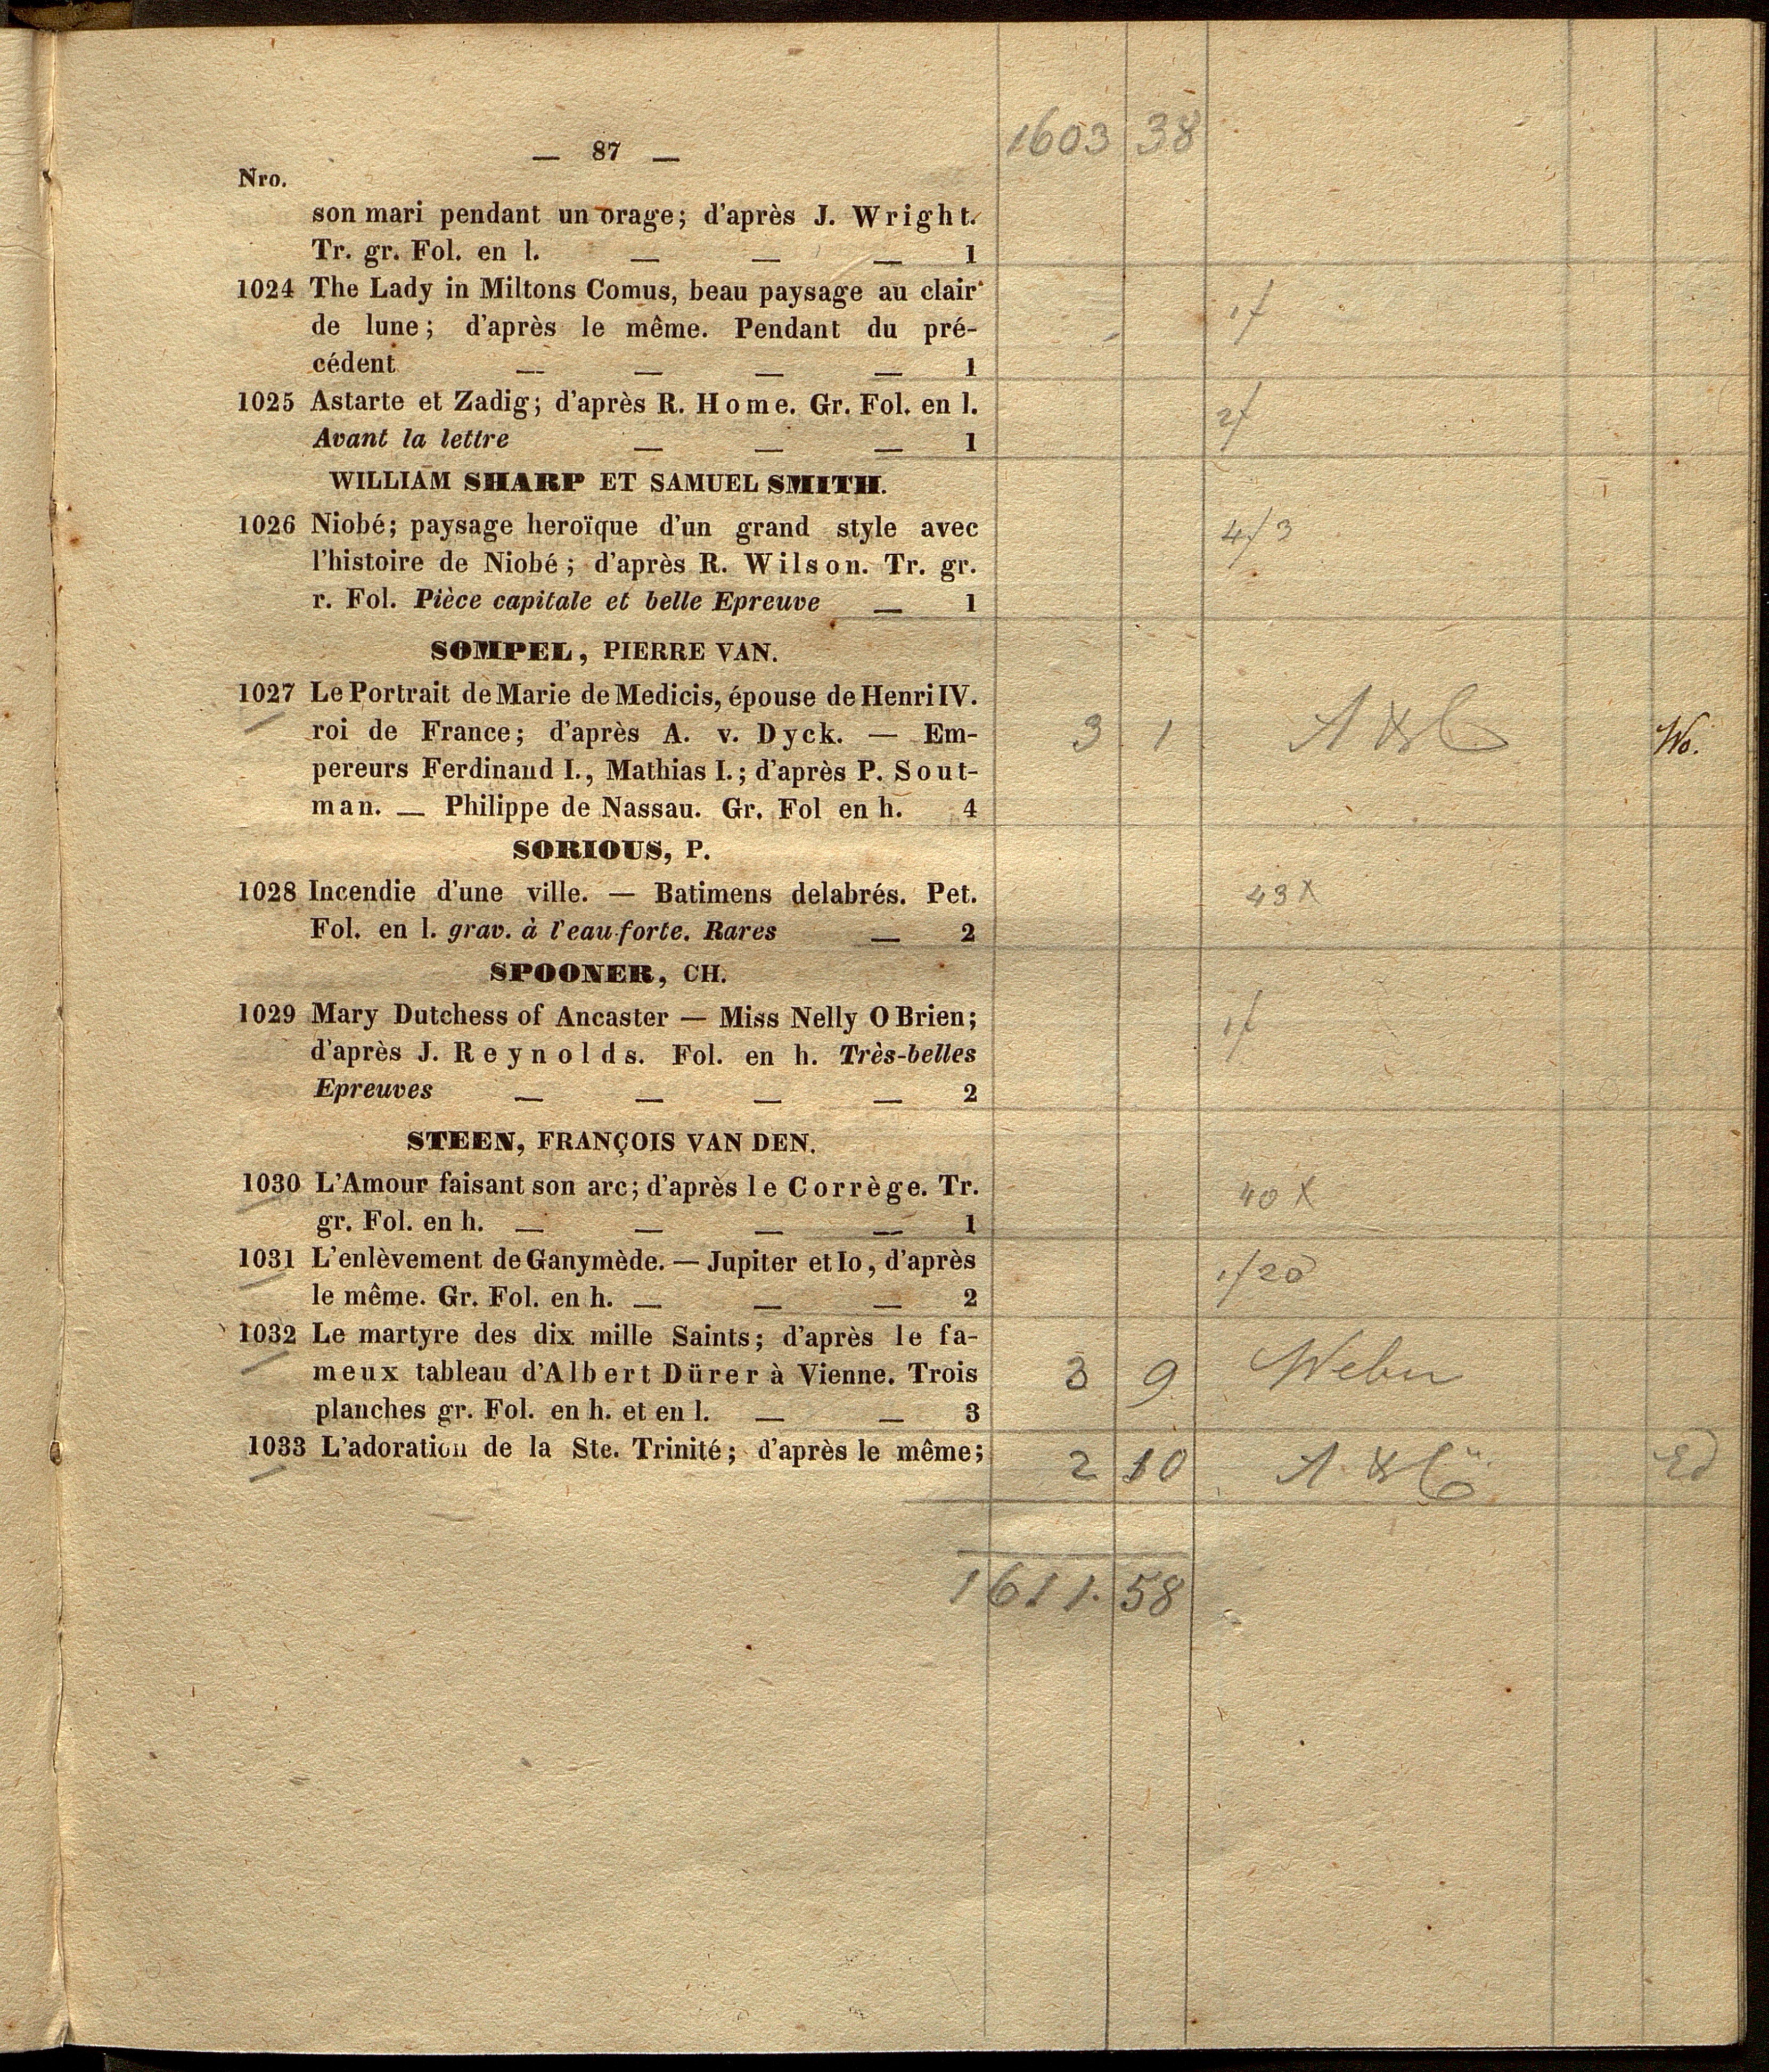 — 87 — 1603 38
Nro.
son mari pendant un orage; d'après J. Wright.
Tr. gr. Fol. en l. — — — 1
1024 The Lady in Miltons Comus, beau paysage au clair 1f
de lune; d'après le même. Pendant du pré-
cédent — — — — 1
1025 Astarte et Zadig; d'après R. Home. Gr. Fol. en l. 2f
Avant la lettre — — — 1
WILLIAM SHARP ET SAMUEL SMITH.
1026 Niobé; paysage heroïque d'un grand style avec 4f 3
l'histoire de Niobé; d'après R. Wilson. Tr. gr.
r. Fol. Pièce capitale et belle Epreuve — 1
SOMPEL, PIERRE VAN.
1027 Le Portrait de Marie de Medicis, épouse de Henri IV.
roi de France; d'après A. v. Dyck. — Em- 3 1 A & C Wo.
pereurs Ferdinand I., Mathias I.; d'après P. Sout-
man. — Philippe de Nassau. Gr. Fol en h. 4
SORIOUS, P.
1028 Incendie d'une ville. — Batimens delabrés. Pet. 43 x
Fol. en l. grav. à l'eau-forte. Rares — 2
SPOONER, CH.
1029 Mary Dutchess of Ancaster — Miss Nelly O Brien; 1f
d'après J. Reynolds. Fol. en h. Très-belles
Epreuves — — — — 2
STEEN, FRANÇOIS VAN DEN.
1030 L'Amour faisant son arc; d'après le Corrège. Tr. 40 x
gr. Fol. en h. — — — — 1
1031 L'enlèvement de Ganymède. — Jupiter et Io, d'après 1f 20
le même. Gr. Fol. en h. — — — 2
1032 Le martyre des dix mille Saints; d'après le fa-
meux tableau d'Albert Dürer à Vienne. Trois 3 9 Weber
planches gr. Fol. en h. et en l. — — 3
1033 L'adoration de la Ste. Trinité; d'après le même; 2 10 A. & Co Ed
1611. 58